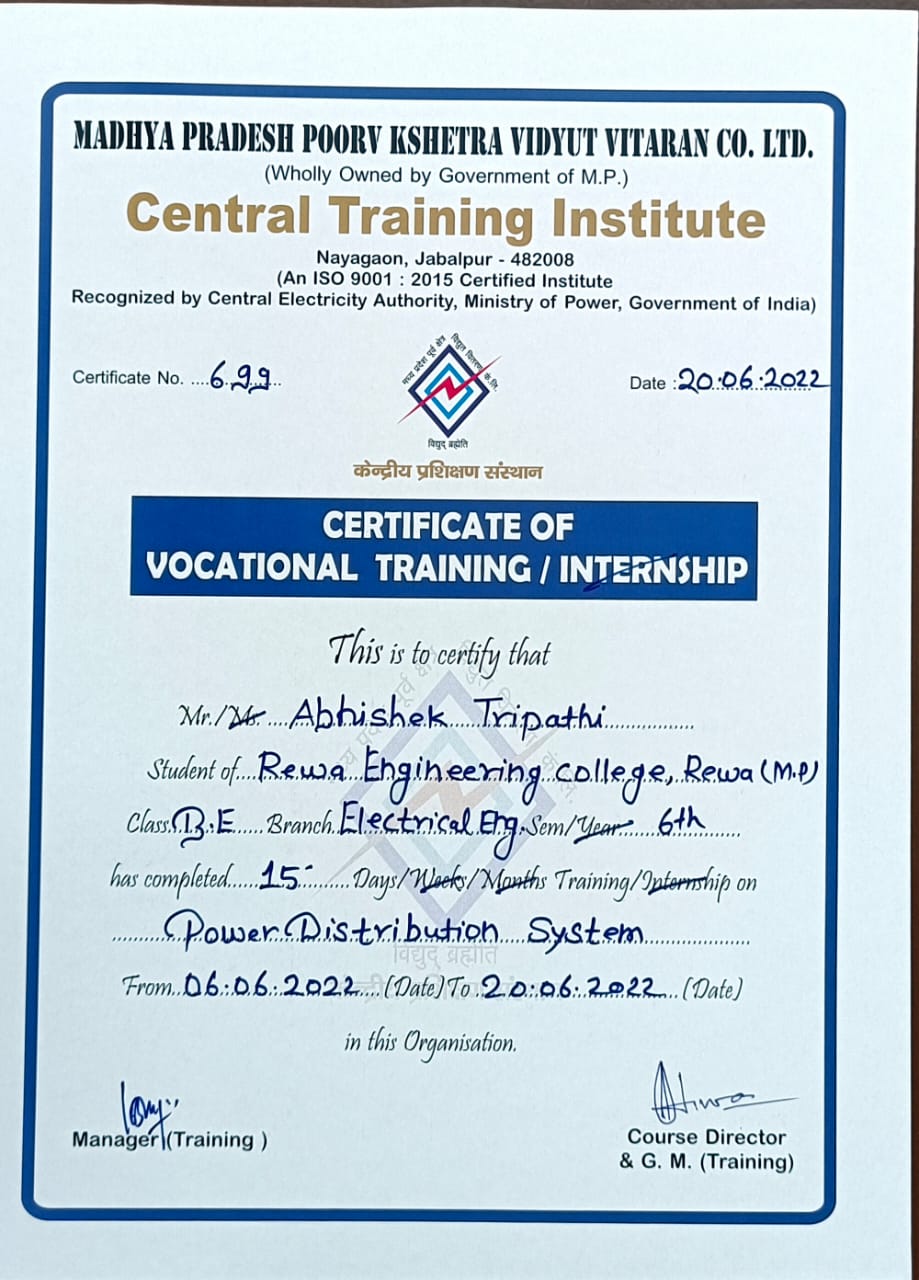 MADHYA PRADESH POORV KSHETRA VIDYUT VITARAN CO. LTD.
(Wholly Owned by Government of M.P.)
Central Training Institute
Nayagaon, Jabalpur - 482008
(An ISO 9001 : 2015 Certified Institute
Recognized by Central Electricity Authority, Ministry of Power, Government of India)
Certificate No. ....699..
मध्य प्रदेश पूर्व क्षेत्र विद्युत वितरण कं.लि.
Date :20.06.2022
विद्युद् ब्रह्मेति
केन्द्रीय प्रशिक्षण संस्थान
CERTIFICATE OF
VOCATIONAL TRAINING / INTERNSHIP
This is to certify that
Mr./Ms. ....Abhishek....Tripathi................
Student of....Rewa Engineering college, Rewa (M.P)
Class.B.E...... Branch.Electrical Eng.Sem/Year.... 6th.........
has completed......15.........Days/Weeks/Months Training/Internship on
............Power Distribution....System...................
From..06.06.2022....(Date) To 20.06.2022....(Date)
in this Organisation.
Manager (Training )
Course Director
& G. M. (Training)